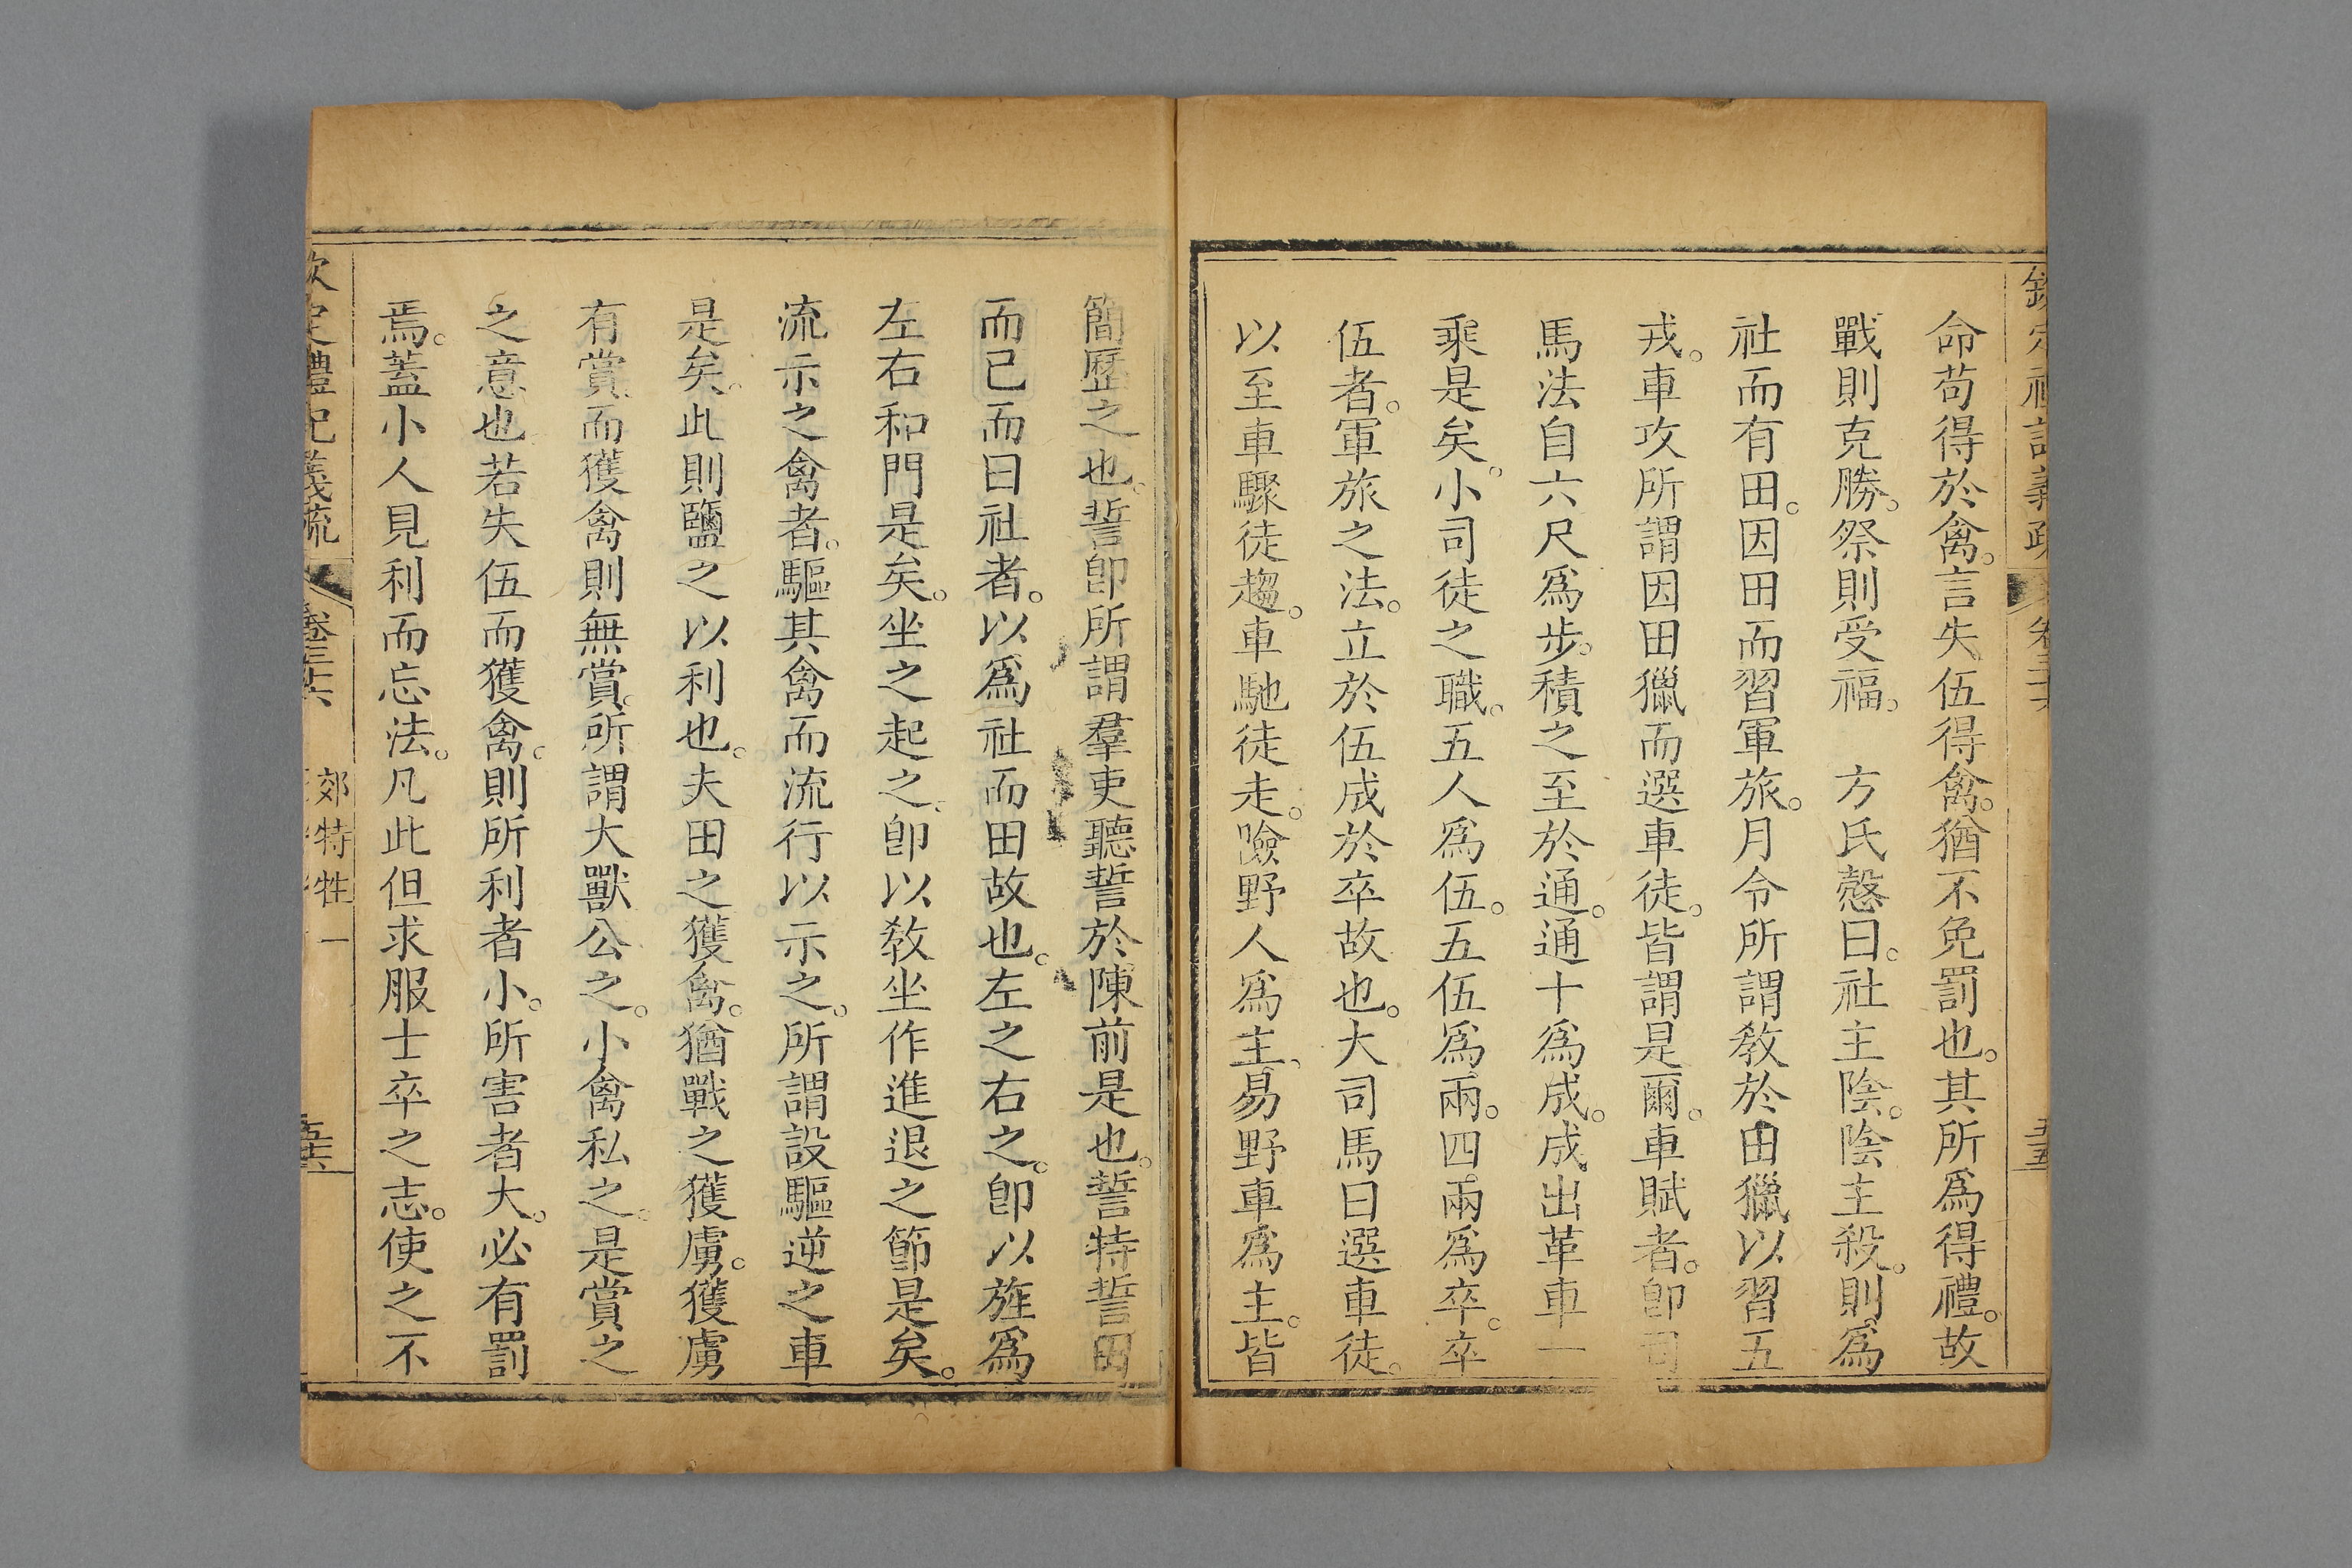 欽定禮記義疏 卷三十六 五十五
命苟得於禽。言失伍得禽。猶不免罰也。其所爲得禮。故
戰則克勝。祭則受福。 方氏慤曰。社主陰。陰主殺。則爲
社而有田。因田而習軍旅。月令所謂敎於田獵以習五
戎。車攻所謂因田獵而選車徒。皆謂是爾。車賦者。卽司
馬法自六尺爲步。積之至於通。通十爲成。成出革車一
乘是矣。小司徒之職。五人爲伍。五伍爲兩。四兩爲卒。卒
伍者。軍旅之法。立於伍成於卒故也。大司馬曰選車徒。
以至車驟徒趨。車馳徒走。險野人爲主、易野車爲主。皆
簡歷之也。誓卽所謂羣吏聽誓於陳前是也。誓特誓田
而已而曰社者。以爲社而田故也。左之右之。卽以旌爲
左右和門是矣。坐之起之、卽以敎坐作進退之節是矣。
流示之禽者。驅其禽而流行以示之。所謂設驅逆之車
是矣。此則鹽之以利也。夫田之獲禽。猶戰之獲虜。獲虜
有賞、而獲禽則無賞。所謂大獸公之。小禽私之。是賞之
之意也若失伍而獲禽。則所利者小。所害者大。必有罰
焉。蓋小人見利而忘法。凡此但求服士卒之志。使之不
欽定禮記義疏 卷三十六 郊特牲一 五十六